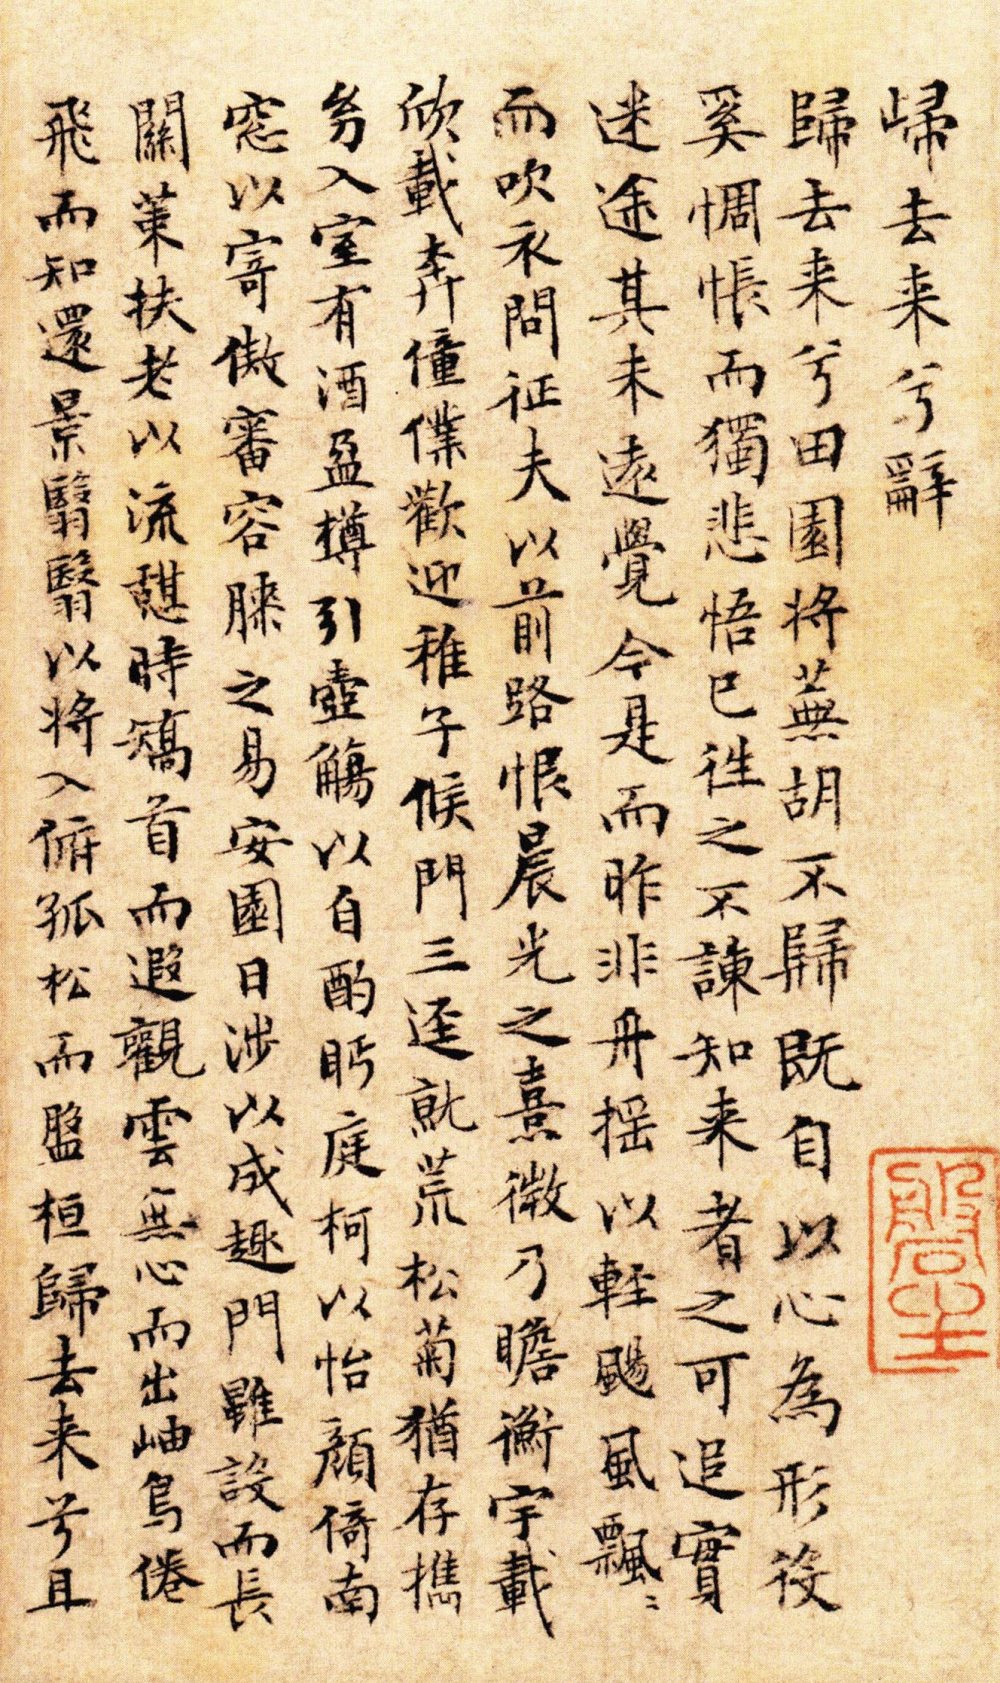 歸去来兮辭
歸去来兮田園将蕪胡不歸既自以心為形役
奚惆悵而獨悲悟已往之不諫知来者之可追實
迷途其未遠覺今是而昨非舟揺以輕颺風飄〻
而吹衣問征夫以前路恨晨光之熹微乃瞻衡宇載
欣載奔僮僕歡迎稚子候門三逕就荒松菊猶存攜
幼入室有酒盈樽引壺觴以自酌眄庭柯以怡顔倚南
窓以寄傲審容膝之易安園日涉以成趣門雖設而長
關策扶老以流憩時矯首而遐觀雲無心而出岫鳥倦
飛而知還景翳翳以将入俯孤松而盤桓歸去来兮且